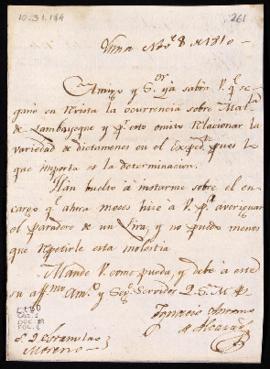 10.31.184
261
Lima Nov.e 8 de 1810
Amigo y S.or ya sabrá V. q.e se
ganó en Revista la ocurrencia sobre
de Lambayeque y p.r esto omito Relacionar la
variedad de dictamenes en el Exped.te pues lo
que importa es la determinacion.
Han buelto á instarme sobre el en
cargo q.e ahora meses hize á V. p.a averiguar
el paradero de un Lira, y no puedo menos
que repetirle esta molestia.
Mande V. como pueda, y debe á este
su af.mo Am.o y Seg.o Servidor Q. S. M. B.
Ignacio Antonio
de Alcazar
S. D. Estanislao
Moreno